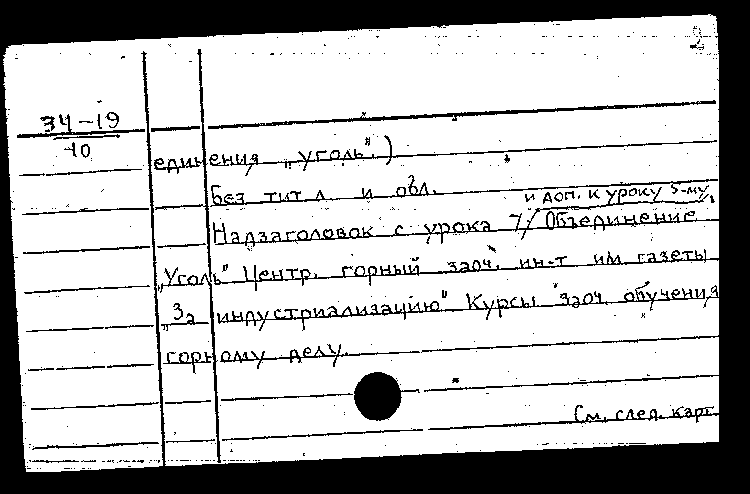 2
34-19
10
единения „уголь“.)
Без тит л и обл.
и доп. к уроку 5-му
Надзаголовок с урока 7/ Объединение
„Уголь“ Центр. горный заоч. ин-т им газеты
„За индустриализацию“ Курсы заоч. обучения
горному делу.
См. след. карт.